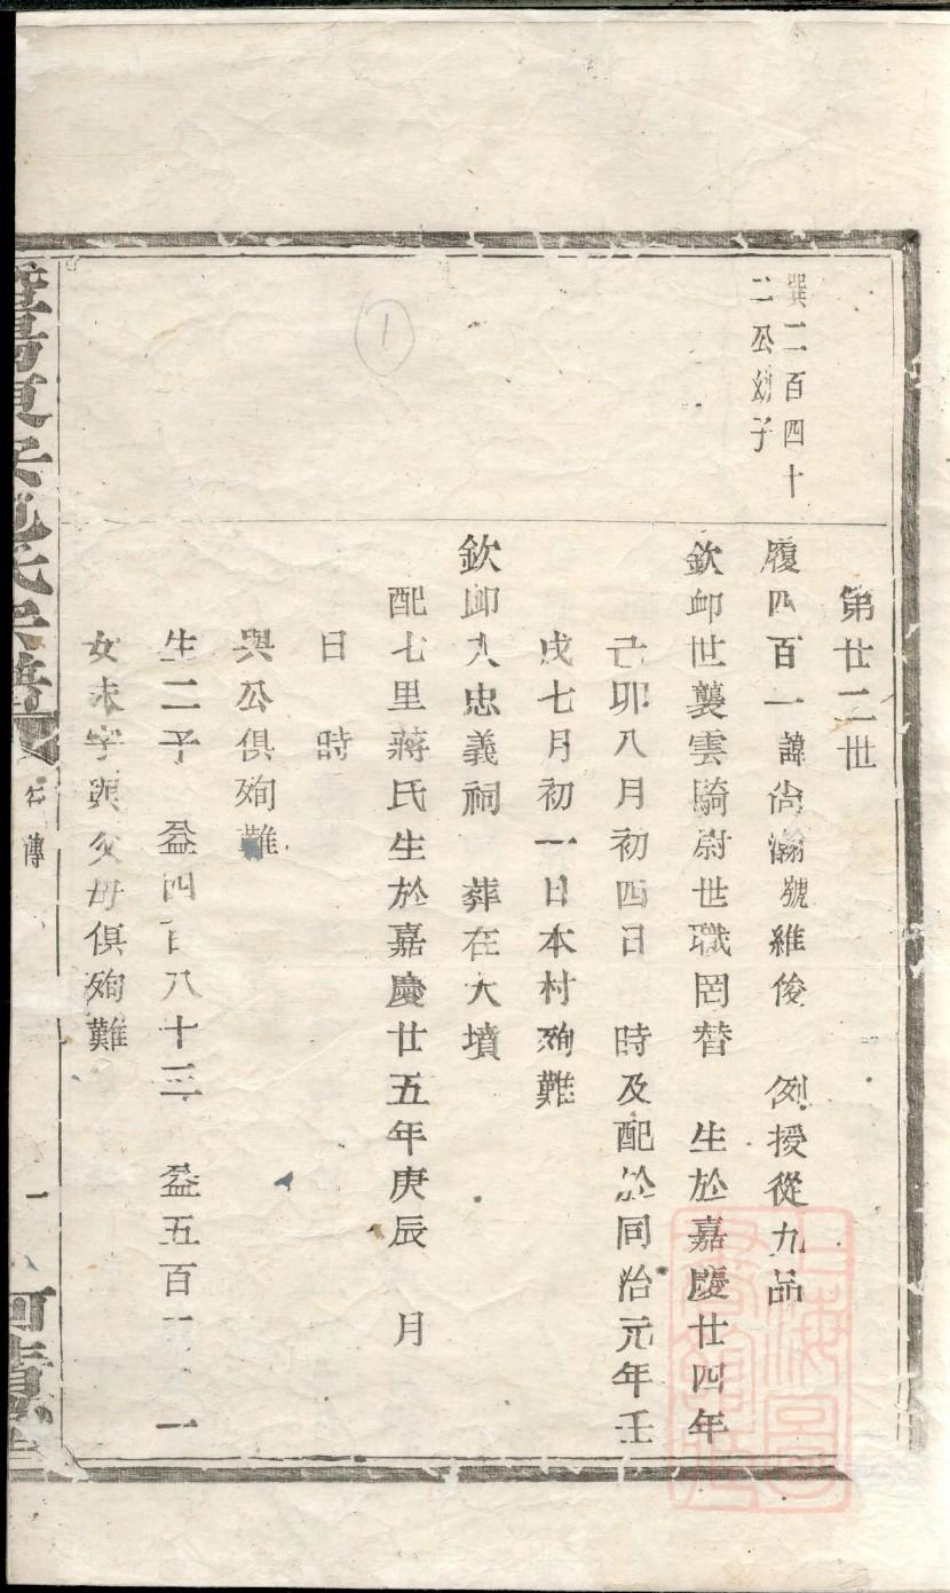 第廿二世
巽二百四十
二公幼子
履四百一諱尙瀚號維俊　例授從九品
欽卹世襲雲騎尉世職罔替　生於嘉慶廿四年
己卯八月初四日　時及配於同治元年壬
戌七月初一日本村殉難
欽卹入忠義祠　葬在大墳
配七里蔣氏生於嘉慶廿五年庚辰　月
日　時
與公俱殉難
生二子　益四百八十三　益五百二　一
女未字與父母俱殉難
東宅氏宗譜
傳
一
上海圖書館藏
1